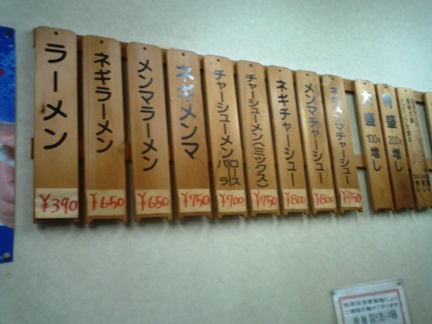 ラーメン
¥390
ネギラーメン
¥650
メンマラーメン
¥650
ネギメンマ
¥750
チャーシューメン ロース バラ
¥700
チャーシューメン(ミックス)
¥750
ネギチャーシュー
¥800
メンマチャーシュー
¥800
ネギメンマチャーシュー
大盛 100円増し
特盛 200円増し